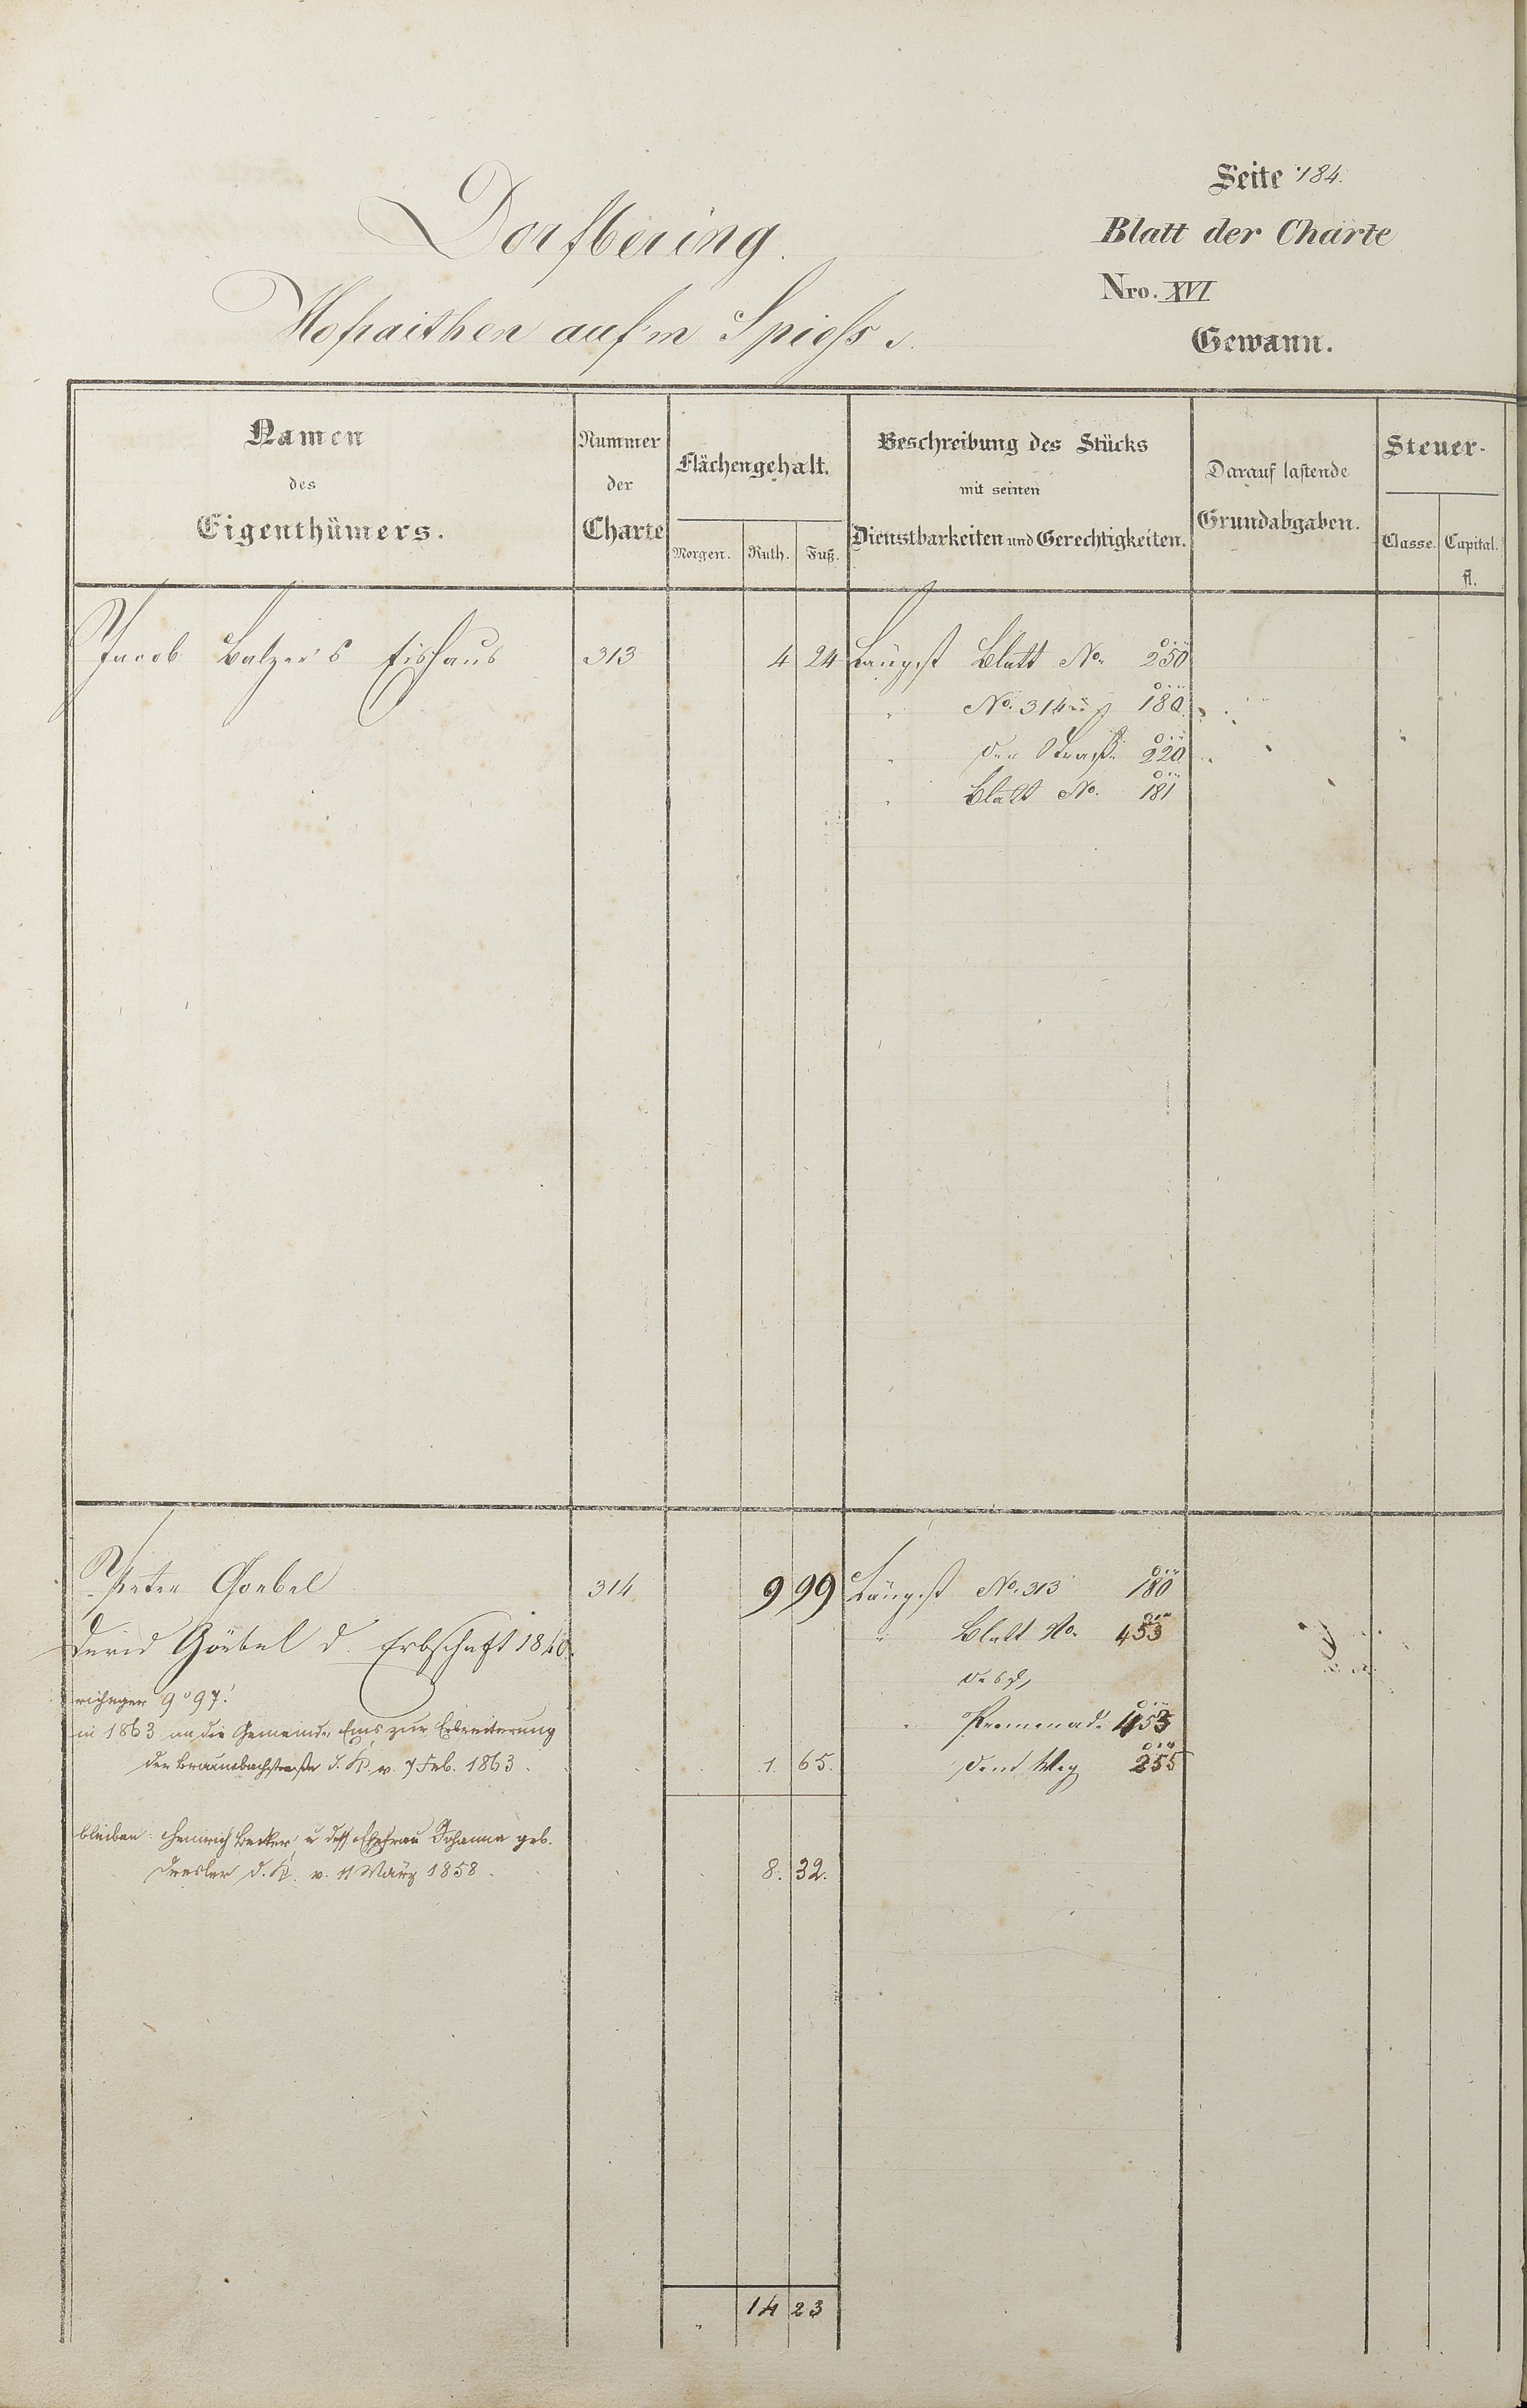 Seite 184.
Dorfbering.
Blatt der Charte
Nro. XVI
Hofraithen auf'm Spiess
Gewann.
Namen
des
Eigenthümers.
Nummer
der
Charte
Flächengehalt.
Morgen. Ruth. Fuß.
Beschreibung des Stücks
mit seinen
Dienstbarkeiten und Gerechtigkeiten.
Darauf lastende
Grundabgaben.
Steuer-
Classe. Capital.
fl.
Jacob Balzer's Eishaus 313 4 24 Längst Blatt No. 250
" No. 314 180
" der Straße 220
" Blatt No. 181
Peter Goebel 314 9 99 Längst No. 313 180
David Göebel d. Erbschaft 1840. " Blatt No. 453
richtiger 9° 97'
in 1863 an die Gemeinde Ems zur Erbreiterung " Promenade 453
der Braunebachstraße d. K. v. 7 Feb. 1863. 1. 65. dem Weg 255
bleiben: Heinrich Becker u dess Ehefrau Johanna geb.
d. K. v. 11 März 1858. 8. 32.
" 14 23